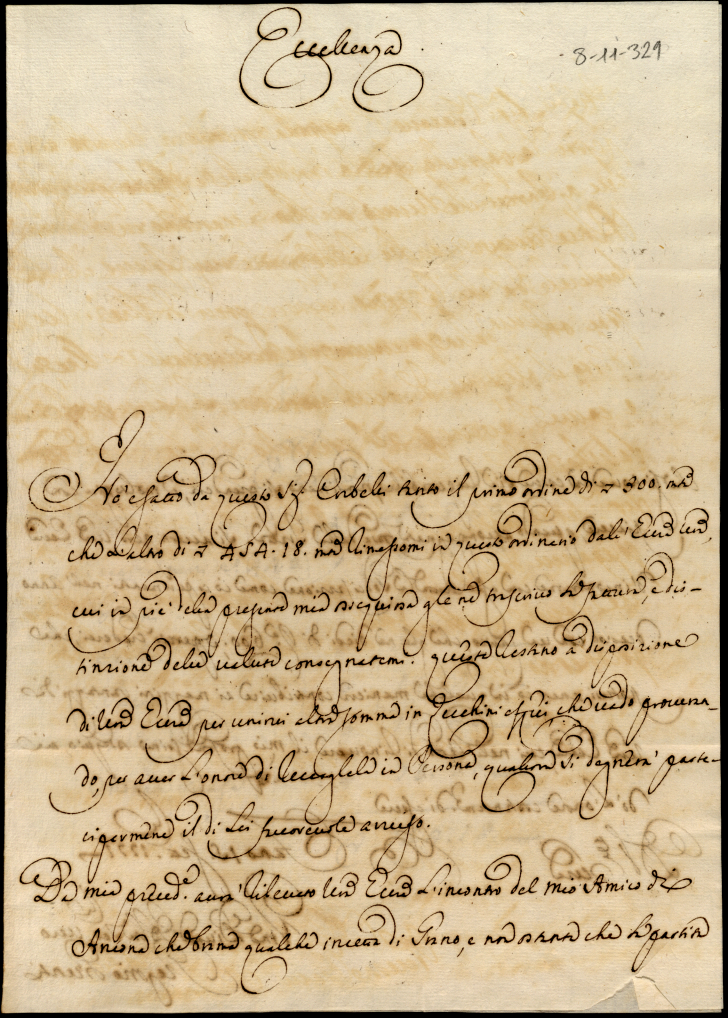 Eccellenza
8-11-329
Hò esatto da questo Sig.r Corbelli tanto il primo ordine di 300. md
che l'altro di 454.18. md rimessomi in questo ordinario dall' Ecc.za V.ra,
cui in pie' della presente mia ossequiosa gle ne trascrivo la fattura, e dis-
tinzione delle valute consegnatemi. queste restano a disposizione
di V.ra Ecc.za per unirvi altra somma in Zecchini effivi, che vado procuran-
do per aver l'onore di recargliela in Persona, qualora si degnerà parte-
ciparmene il di Lei favorevole avviso.
Da mia preced.e avrà rilevato V.ra Ecc.za l'incontro del mio Amico di
Ancona che brama qualche incetta di Grano, e non ostante che la partita